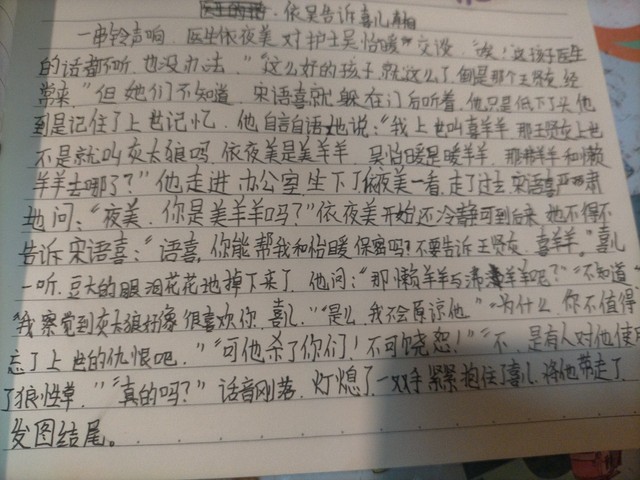 依吴告诉喜儿真相
一串铃声响，医生依夜美对护士吴怡暖交谈。“唉！这孩子医生
的话都不听，也没办法。”“这么好的孩子，就这么了，倒是那个王贤友经
常来。”但她们不知道，宋语喜就躲在门后听着，他只是低下了头，他
到是记住了上世记忆，他自言自语地说：“我上世叫喜羊羊，那王贤友上世
不是就叫灰太狼吗，依夜美是美羊羊，吴怡暖是暖羊羊，那沸羊羊和懒
羊羊去哪了？”他走进办公室，坐下了，依夜美一看，走了过去，宋语喜严肃
地问：“夜美，你是美羊羊吗？”依夜美开始还冷静可到后来，她不得不
告诉宋语喜：“语喜，你能帮我和怡暖保密吗？不要告诉王贤友，喜羊羊。”喜儿
一听，豆大的眼泪花花地掉下来了，他问：“那懒羊羊与沸羊羊呢？”“不知道”
“我察觉到灰太狼好像很喜欢你，喜儿。”“是么，我不会原谅他”“为什么，你不值得
忘了上世的仇恨吧。”“可他杀了你们！不可饶恕！”“不，是有人对他使用
了狼性草。”“真的吗？”话音刚落，灯熄了，一双手紧紧抱住了喜儿，将他带走了
发图结尾。